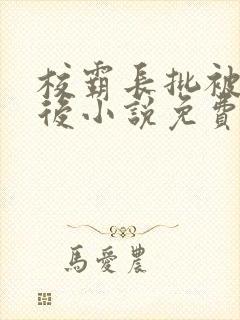 校霸長批被
後小說免費
馬愛農